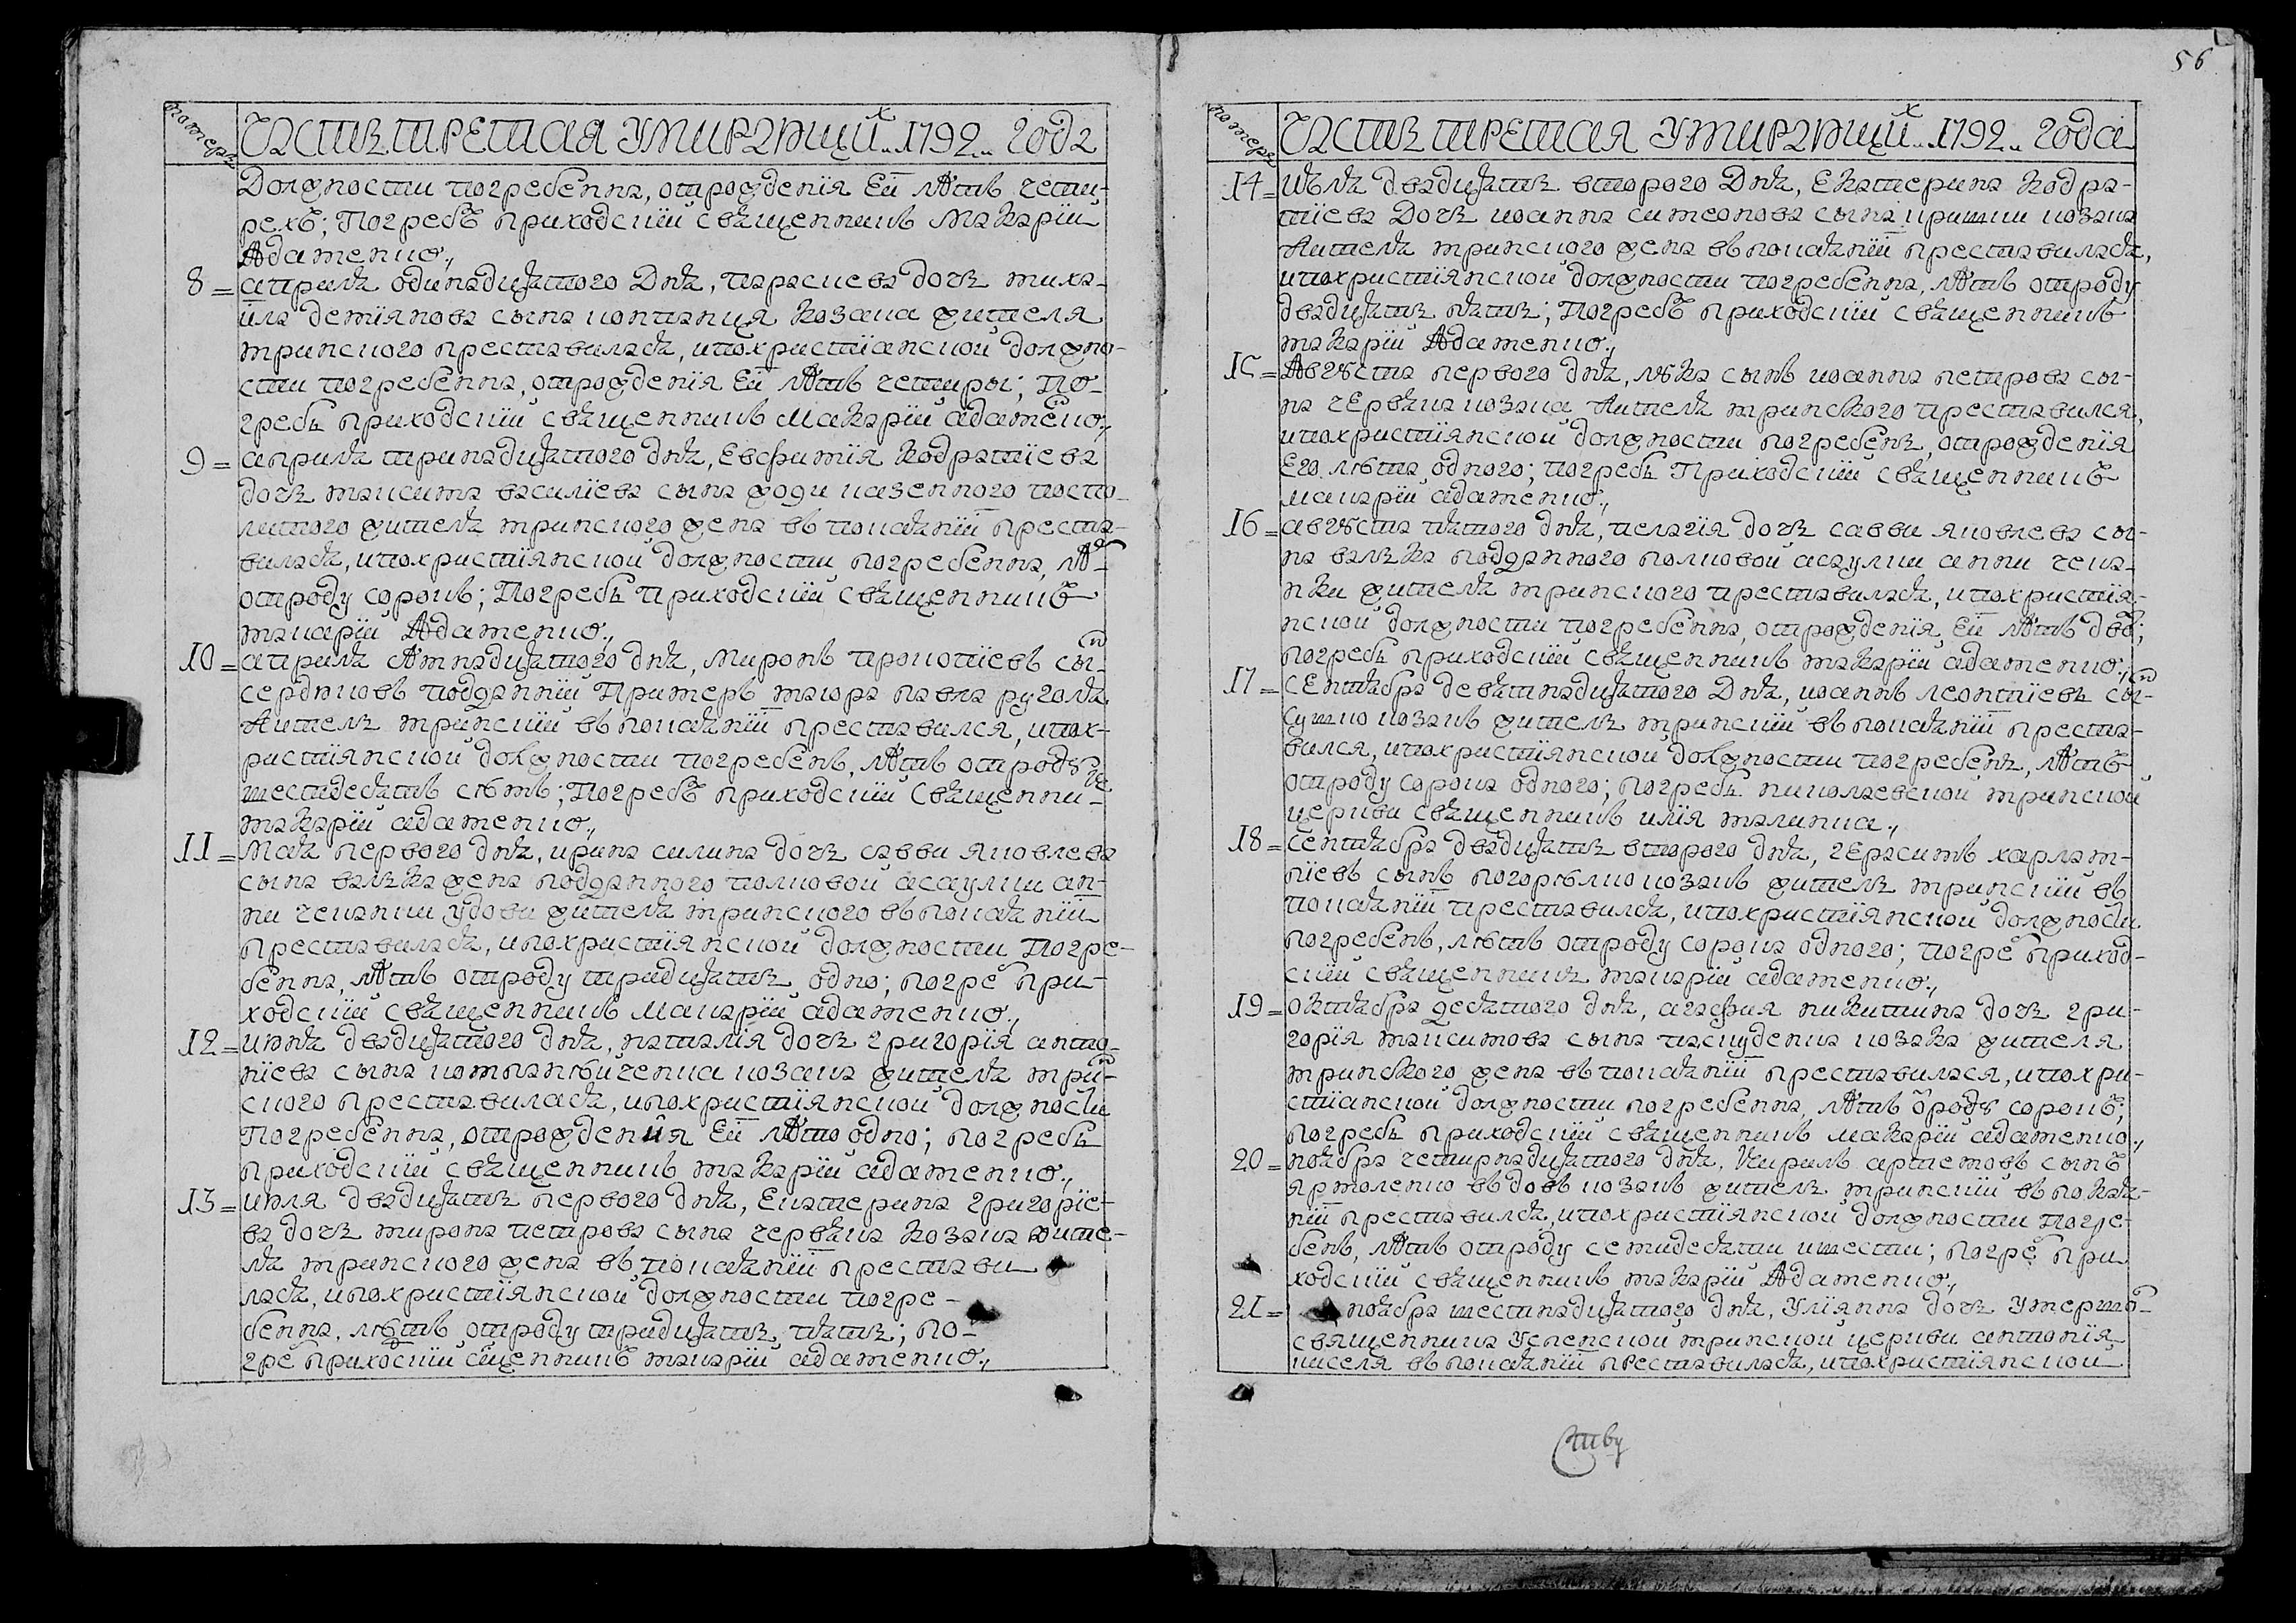 номеръ
Часть третая умирающихъ 1792 года
Должности погребенна, отрожденія Ей лѣтъ чети-
рехъ; Погребъ приходскій священникъ Макарій
Адаменко.,
8 = априля одинадцятого Дня, параскева дочь миха-
ила демїянова сына козака жителя
мринского преставилася, ипохристіанской должно-
сти погребенна, отрожденія Ей лѣтъ четыры; По-
гребъ приходскій священникъ Макарій адаменко.,
9 = априля тринадцятого дня, Евфимія Кодратіева
дочь максима василіева сына казенного поспо-
литого жителя мринского жена въ покаяніи преста-
вилася, ипохристіянской должности погребенна, лѣ-
отроду сорокъ; Погребъ приходскій священникъ
макарій Адаменко.,
10 = априля дня, Миронъ прокопіевъ сынъ
сердюковъ подданній Примеръ маіора павла
житель мринскій въ покаяніи преставился, ипох-
ристіянской должности погребенъ, лѣтъ отроду
шестдесятъ ; Погребъ приходскій священни-
макарій адаменко.,
11 = Мая первого дня, ирина силина дочь савви яковлева
сына валька жена подданного полковой асаулши ан-
ни удови жителя мринского въ покаяніи
преставилася, ипохристіянской должности Погре-
бенна, лѣтъ отроду тридцять одно; погреб при-
ходскій священникъ Макарій адаменко.,
12 = июня двадцятого дня, наталія дочь григорія анто-
ніева сына козака жителя мрин-
ского преставилася, ипохристіянской должности
Погребенна, отрожденія Ей лѣто одно; погребъ
приходскій священникъ макарій адаменко.,
13 = июля двадцять первого дня, Екатерина григоріе-
ва дочь мирона петрова сына червяка козака жите-
ля мринского жена въ покаяніи престави
лася, ипохристіянской должности погре-
бенна, лѣтъ отроду тридцять пять; по-
гре приходскій сщенникъ макарій адаменко.,
56
номеръ
Часть третая умирающихъ 1792 года
14 = Июля двадцять второго Дня, Екатерина Кодра-
тіева Дочь иоанна симеонова сына козака
жителя мринского жена въ покаяніи преставилася,
ипохристіянской должности погребенна, лѣтъ отроду
двадцять пять; Погребъ приходскій священникъ
макарій Адаменко.,
15 = Августа первого дня, лука сынъ иоанна петрова сы-
на червяка козака жителя мринского преставился,
ипохристіянской должности погребенъ, отрожденія
Его лѣта одного; погребъ Приходскій священникъ
макарій адаменко.,
16 = августа пятого дня, пелагія дочь савви яковлева сы-
на валька подданного полковой асаулши анни
жителя мринского преставилася, ипохристія-
нской должности погребенна, отрожденія Ей лѣтъ ;
погребъ приходскій священникъ макарій адаменко.,
17 = Сентября девятнадцятого Дня, иоаннъ леонтіевъ сынъ
козакъ житель мринскій въ покаяніи преста-
вился, ипохристіянской должности погребенъ, лѣтъ
отроду сорока одного; погребъ николаевской мринской
церкви священникъ илія малинка.,
18 = Сентября двадцять второго дня, герасимъ харлам-
піевъ сынъ погорѣлко козакъ житель мринскій въ
покаяніи преставился, ипохристіянской должности
погребенъ, лѣтъ отроду сорока одного; погре приход-
скій священникъ макарій адаменко.,
19 = Октября десятого дня, агафия никитина дочь гри-
горія максимова сына козака жителя
мринского жена въ покаяніи преставилася, ипохри-
стіанской должности погребенна, лѣтъ отроду сорокъ;
погребъ приходскій священникъ макарій адаменко.,
20 = ноября четирнадцятого дня, Кирилъ артемовъ сынъ
ярмоленко вдовъ козакъ житель мринскій въ покая-
ніи преставился, ипохристіянской должности погре-
бенъ, лѣтъ отроду семидесяти ишести; погре при
ходскій священникъ макарій Адаменко.,
21 = ноября шестнадцятого дня, Уліянна дочь умершо-
священника Успенской мринской церкви антонія
киселя въ покаяніи преставилася, ипохристіянской